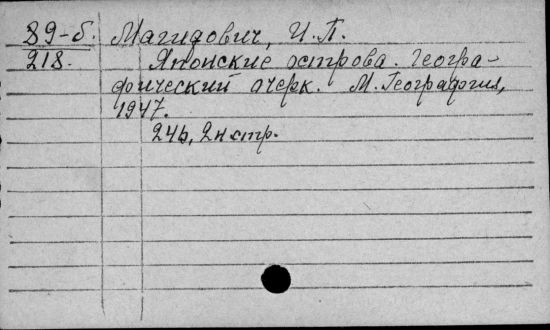 89-б. Магидович, И.П.
218. Японские острова. Геогра-
фический очерк. М. Географгиз,
1947.
246, 2н стр.